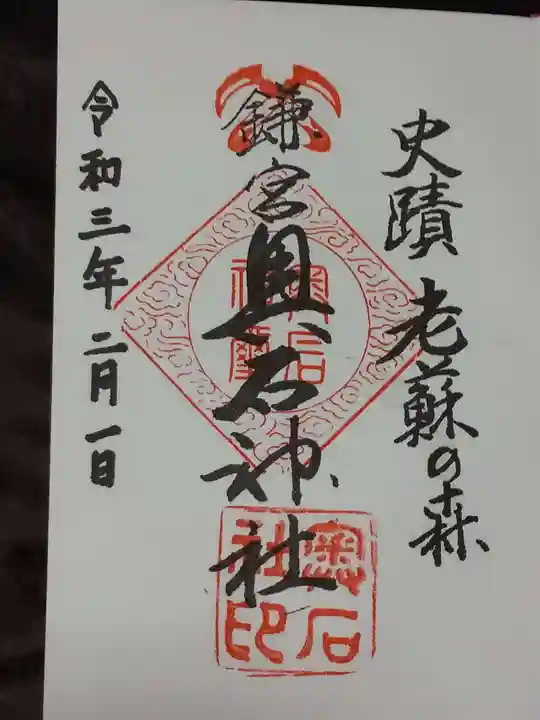 史蹟 老蘇の森
鎌宮 奥石神社
奥石
社印
令和三年二月一日